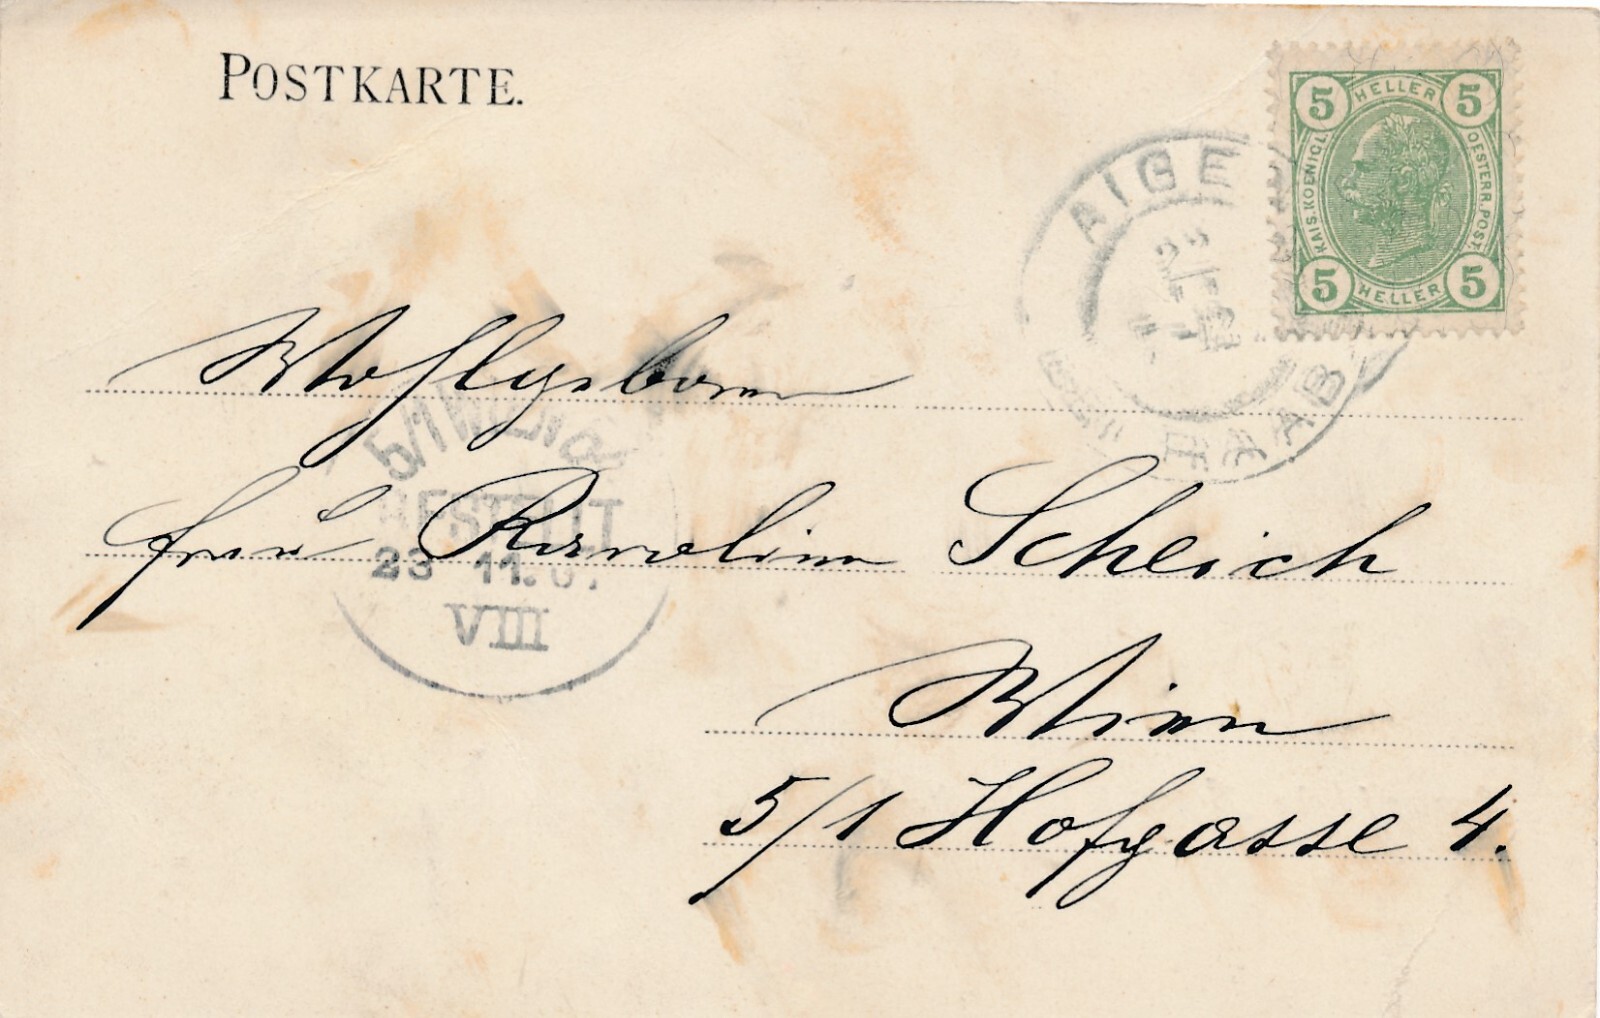 POSTKARTE.
5 HELLER 5
KAIS. KOENIGL.
OESTERR. POST.
5 HELLER 5
AIGE
RAAB
Wohlgeboren
5/1 WIEN
BESTELLT
23 11.0.
VIII
Frau Karoline Schleich
Wien
5/1 Hofgasse 4.